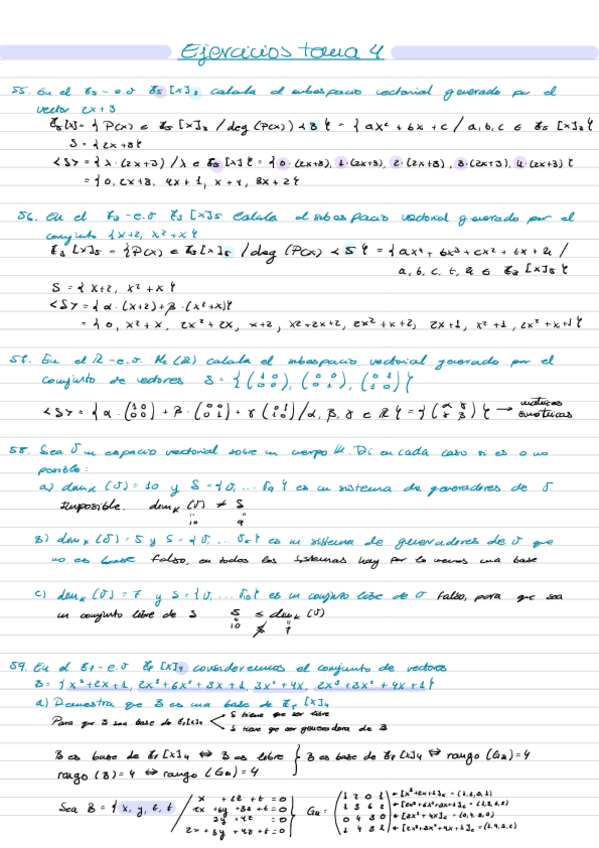 Ejercicios tema 4
55. En el ℤ5 - e.v ℤ5 [x]3 calcula el subespacio vectorial generado por el
vector 2x+3
S = {2x+3}
<S> = {λ·(2x+3) / λ ∈ ℤ5 [x]} = {0·(2x+3), 1·(2x+3), 2·(2x+3), 3·(2x+3), 4·(2x+3)}
= {0, 2x+3, 4x+1, x+4, 3x+2}
56. En el ℤ3 - e.v ℤ3 [x]5 calcula el subespacio vectorial generado por el
conjunto {x+2, x²+x}
a, b, c, t, u ∈ ℤ3 [x]5}
S = {x+2, x²+x}
<S> = {α·(x+2)+β·(x²+x)}
= {0, x²+x, 2x²+2x, x+2, x²+2x+2, 2x²+x+2, 2x+1, x²+1, 2x²+x+1}
En el ℝ - e.v. M2(ℝ) calcula el subespacio vectorial generado por el
conjunto de vectores S = {(1 0 0 0), (0 0 0 1), (0 1 1 0)}
matrices
simétricas
58. Sea V un espacio vectorial sobre un cuerpo K. Di en cada caso si es o no
posible:
a) dimK (V) = 10 y S = {v1 ... v9} es un sistema de generadores de V
Imposible. dimK (V) ≠ S
10 9
b) dimK (V) = 5 y S = {v1 ... } es un sistema de generadores de V que
no es base Falso, en todos los sistemas hay por lo menos una base
c) dimK (V) = 7 y S = {v1 ... v10} es un conjunto libre de V Falso, para que sea
un conjunto libre de S S ≤ dimK (V)
10 7
59. En el ℤ7 - e.v ℤ7 [x]4 consideremos el conjunto de vectores
B = {x³+2x+1, 2x³+6x²+3x+1, 3x²+4x, 2x³+3x²+4x+1}
a) Demuestra que B es una base de ℤ7 [x]4
Para que B sea base de ℤ7[x]4
S tiene que ser libre
S tiene que ser generadora de B
B es base de ℤ7 [x]4 ⇔ B es libre } B es base de ℤ7 [x]4 ⇔ rango (GB) = 4
rango (B) = 4 ⇔ rango (GB) = 4
Sea B = {x, y, z, t /